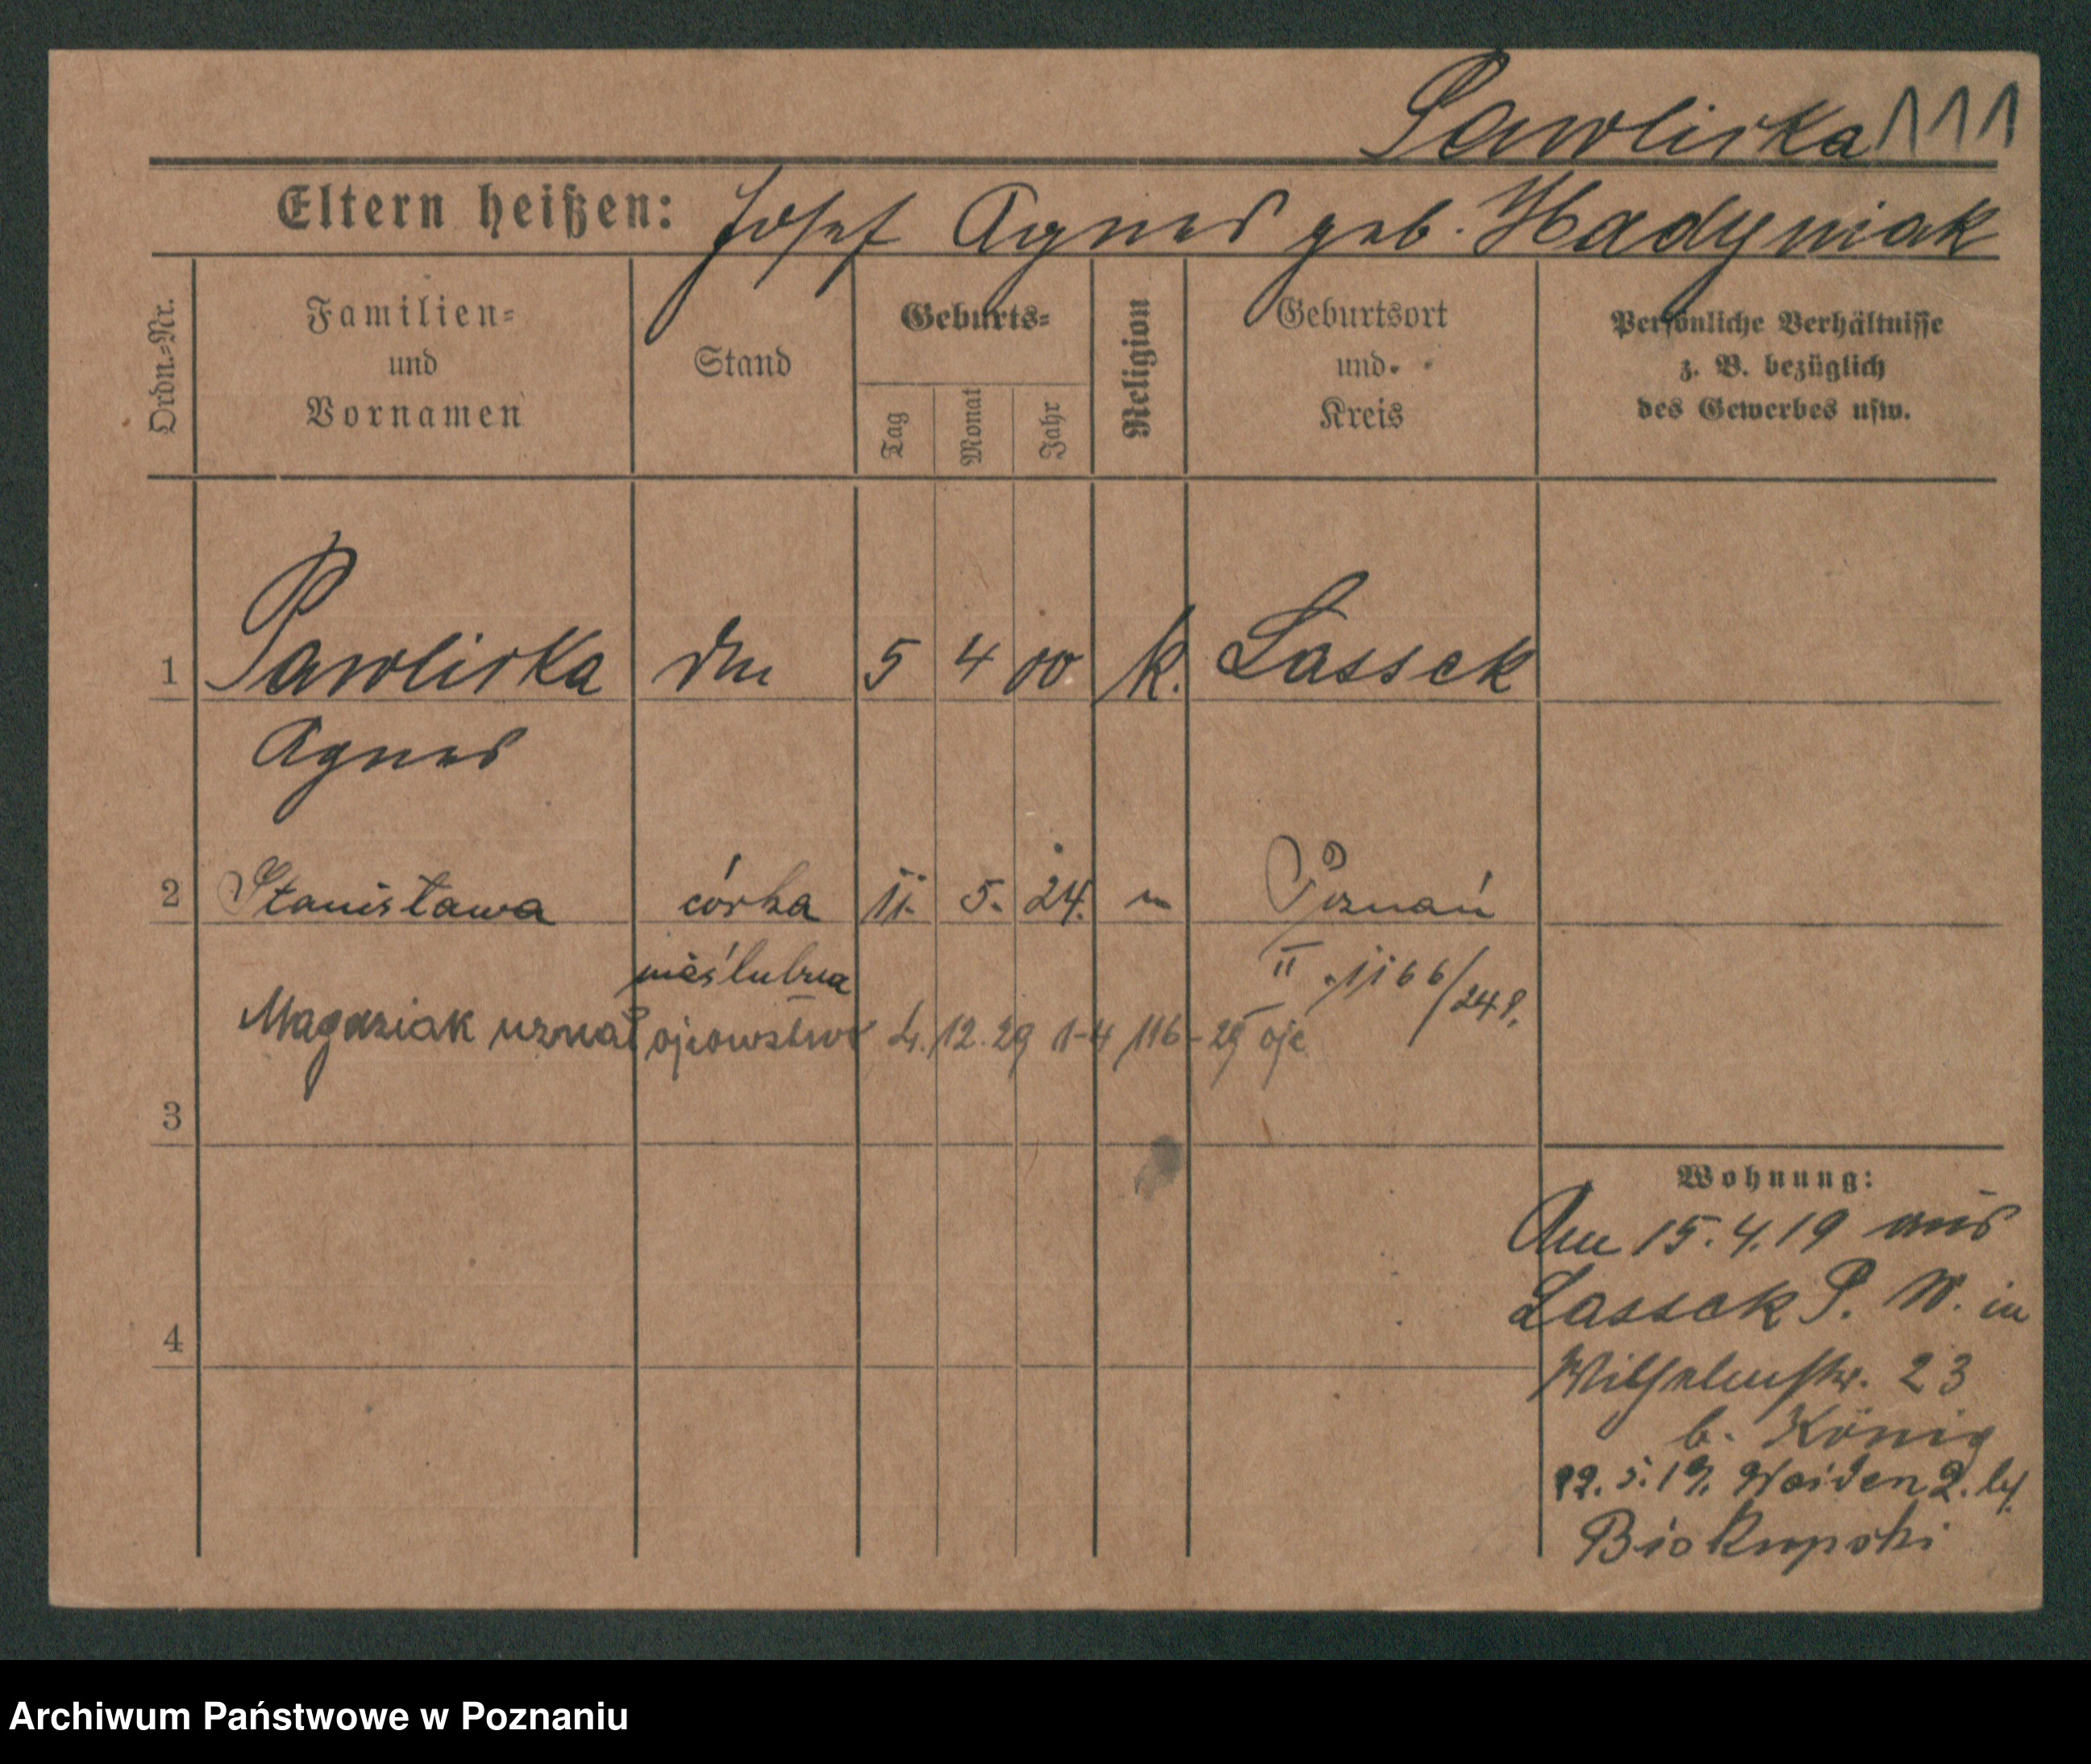 Pawlicka 111
Eltern heißen: Josef Agnes geb. Hadyniak
Ordn.-Nr.
Familien-
und
Vornamen
Stand
Geburts-
Tag
Monat
Jahr
Religion
Geburtsort
und
Kreis
Persönliche Verhältnisse
z. B. bezüglich
des Gewerbes usw.
1 Pawlicka 5 4 00 k. Lassek
Agnes
2 Stanisława córka 11. 5. 24. " Poznań
nieślubna II 1166/24 r.
Magdziak uznał ojcowstwo 4. 12. 29 1-4 116-29
3
4
Wohnung:
Am 15.4.19 aus
Lassek P. W. in
Wilhelmstr. 23
b. König
22.5.19. Weiden 2. bei
Biskupski
Archiwum Państwowe w Poznaniu